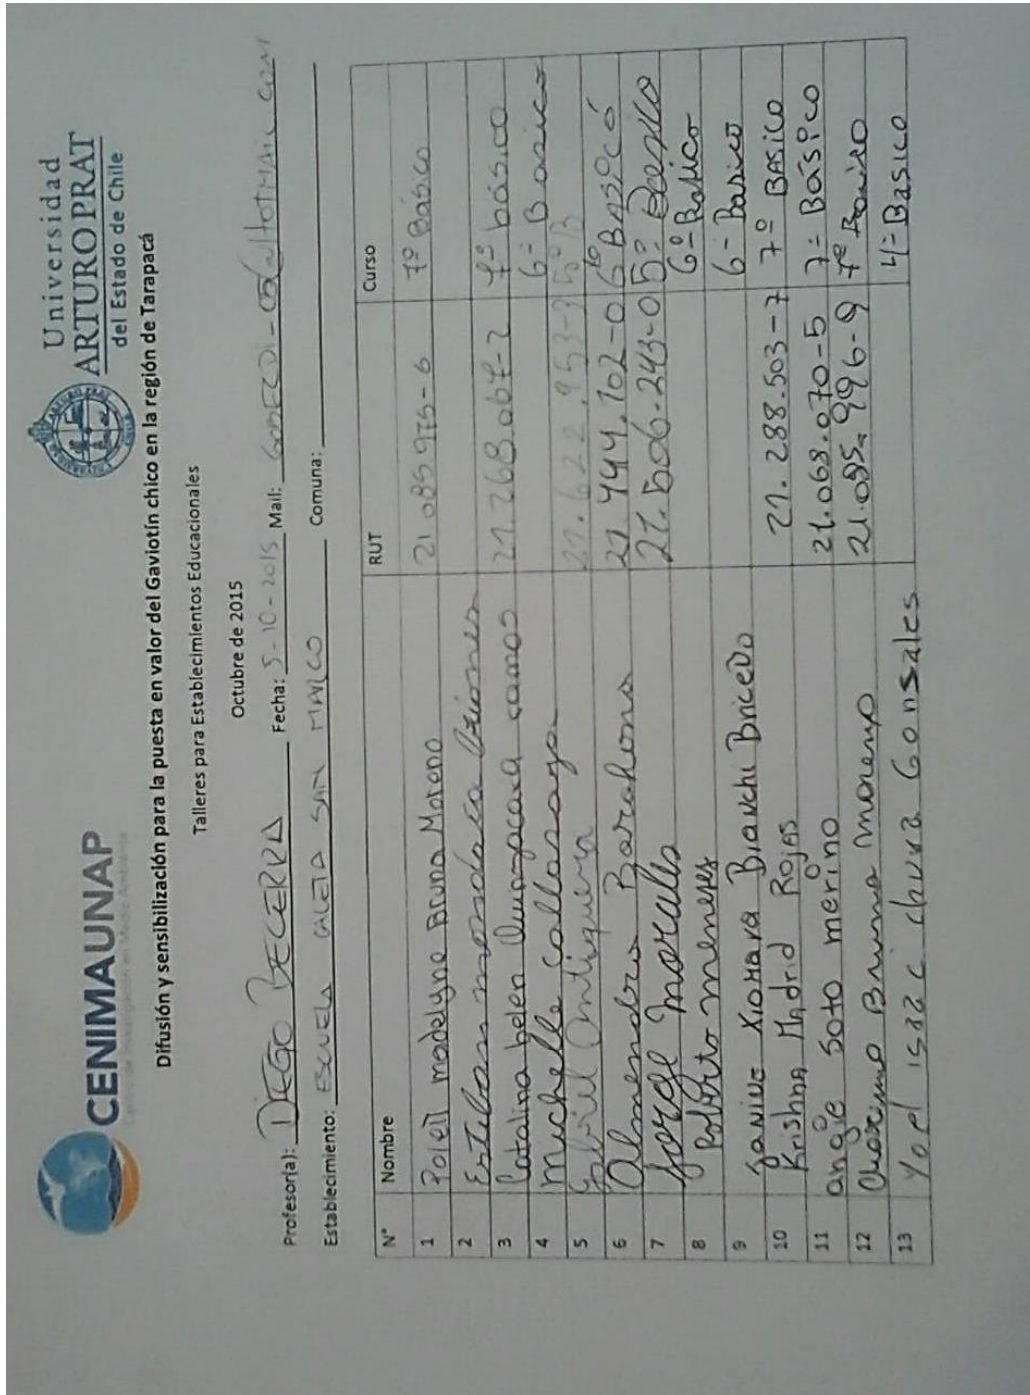 CENIMAUNAP
Universidad
ARTURO PRAT
del Estado de Chile
Difusión y sensibilización para la puesta en valor del Gaviotín chico en la región de Tarapacá
Talleres para Establecimientos Educacionales
Octubre de 2015
Profesor(a): DIEGO BECERRA Fecha: 5-10-2015 Mail:
Establecimiento: ESCUELA CALETA SAN MARCO Comuna:
N° Nombre RUT Curso
1 Polett madelyne Bruna Moreno 21.085975-6 7º Básico
2 Esteban moscoso
3 Catalina belen 21.268.067-2 7º básico
4 michelle collasaya 6= Basico
5 Gabriel Antiquira 21.622.953-3 5º B
6 Almendra Barahona 21.444.702-0 6º BASICO
7 Jorge Morales 21.506.243-0 5º Basico
8 Roberto meneses 6º Basico
9 JANINE XIOMARA BIANCHI BRICEDO 6- Basico
10 Krishna Madrid Rojas 21.288.503-7 7º BASICO
11 angie soto merino 21.068.070-5 7= BÁSICO
12 Bruna moreno 21.085.996-9 7º
13 Yoel isaac chura Gonsales 4= BASICO